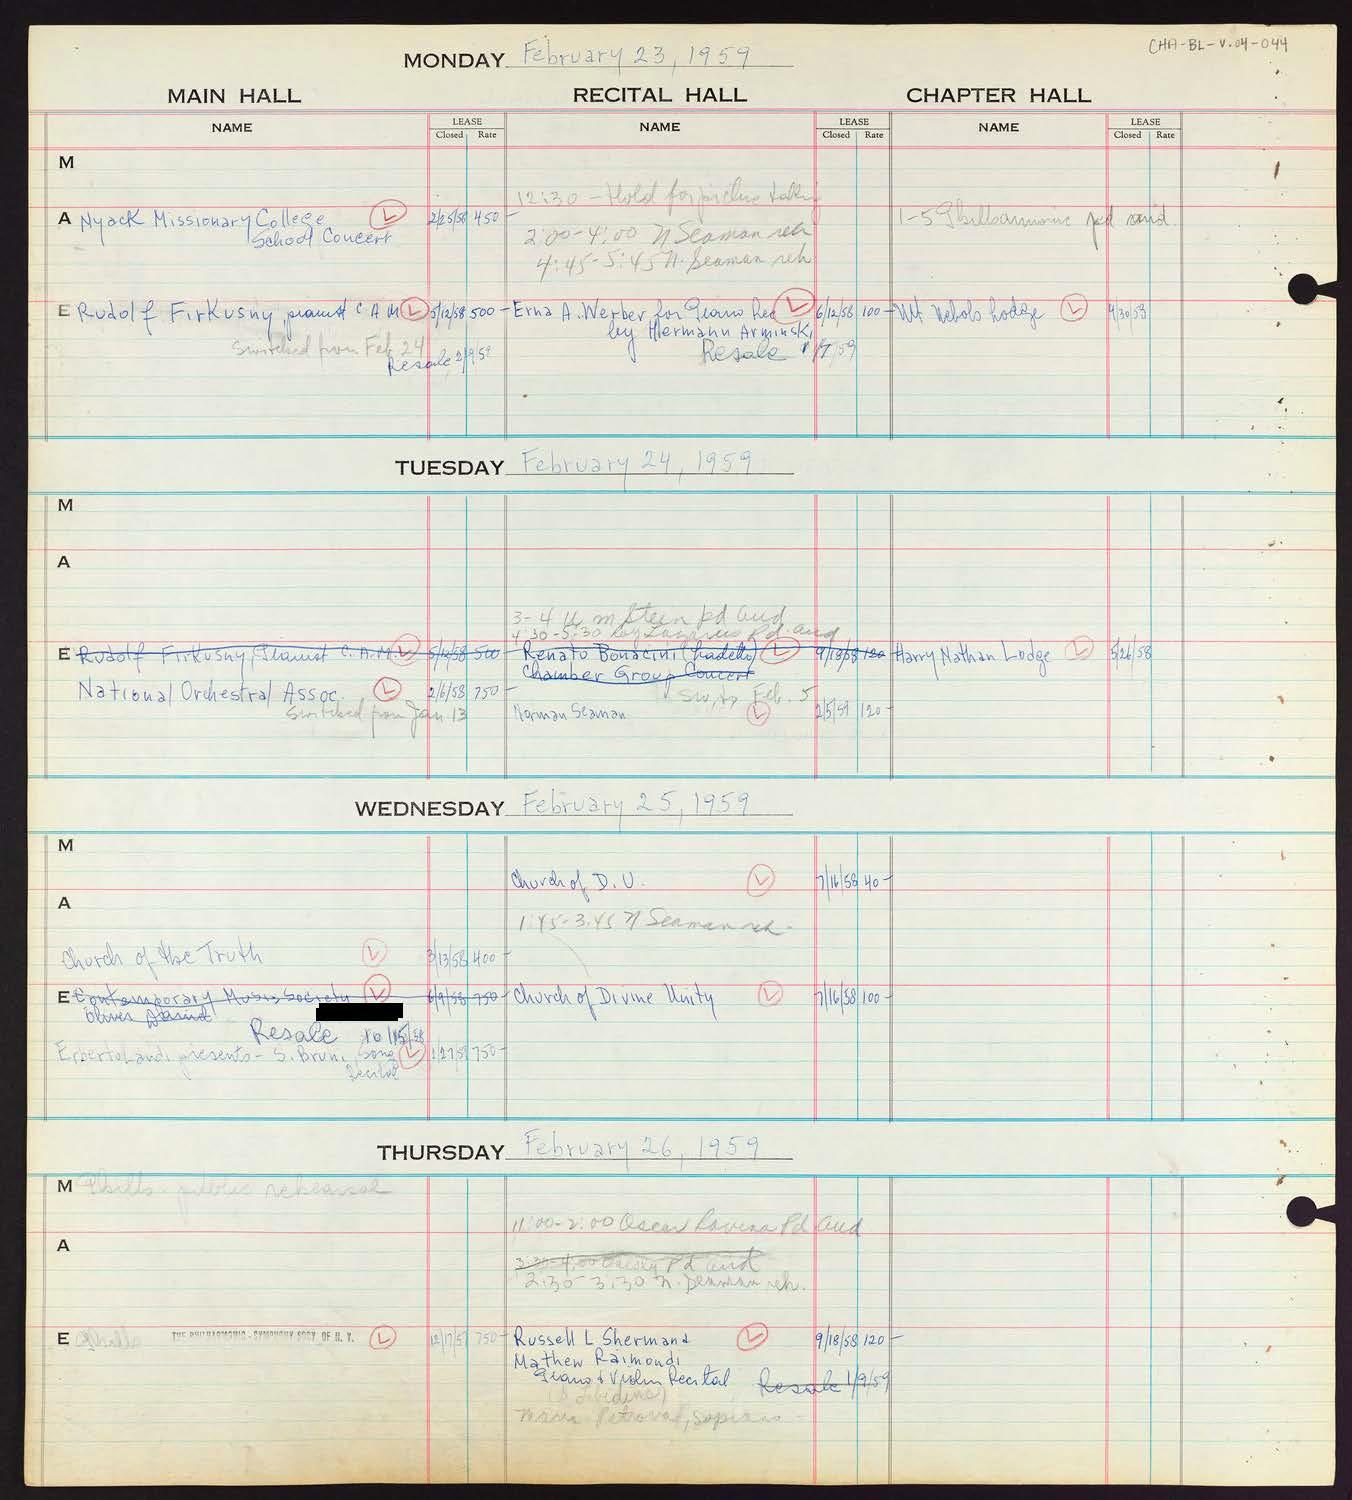 CHA-BL-V.04-044
MONDAY February 23, 1959
MAIN HALL RECITAL HALL CHAPTER HALL
NAME LEASE Closed Rate NAME LEASE Closed Rate NAME LEASE Closed Rate
M
12:30 - Hold for
A Nyack Missionary College L 2/25/58 450-
School Concert
2:00-4:00 N Seaman reh
4:45-5:45 N. Seaman reh
1-5 Philharmonic pd aud.
E Rudolf Firkusny, pianist C A M L 5/12/58 500-
Switched from Feb 24
Resale 2/9/59
Erna A. Werber for Piano Rec L 6/12/58 100-
by Hermann Arminski
Resale 1/9/59
Mt Nebols Lodge L 4/30/58
TUESDAY February 24, 1959
M
A
3-4 m Steen pd aud
4:30-5:30 Roy Lazarus Pd. aud
E Rudolf Firkusny, Pianist C.A.M. L 5/12/58 500
National Orchestral Assoc. L 2/6/58 750-
Switched from Jan 13
Renato Bonacini (Fradetto) L 9/18/58 120
Chamber Group Concert
Sw. to Feb. 5
Norman Seaman L 2/5/59 120-
Harry Nathan Lodge L 5/26/58
WEDNESDAY February 25, 1959
M
Church of D. U. L 7/16/58 40-
A
1:45-3:45 N Seaman reh.
Church of the Truth L 3/13/58 400-
E Contemporary Music Society L 6/9/58 750-
Oliver Daniel
Resale 10/15/58
Erberto Landi presents - S. Bruni, Song L 1/27/59 750-
Recital
Church of Divine Unity L 7/16/58 100-
THURSDAY February 26, 1959
M Philh. public rehearsal
11:00-2:00 Oscar Ravina Pd Aud
A
3:30-4:00 Pd aud
2:30-3:30 N. Seaman reh.
E Philh THE PHILHARMONIC-SYMPHONY SOCY. OF N. Y. L 12/17/57 750-
Russell L Shermand L 9/18/58 120-
Mathew Raimondi
Piano & Violin Recital Resale 1/9/59
Maria Petrova, soprano -